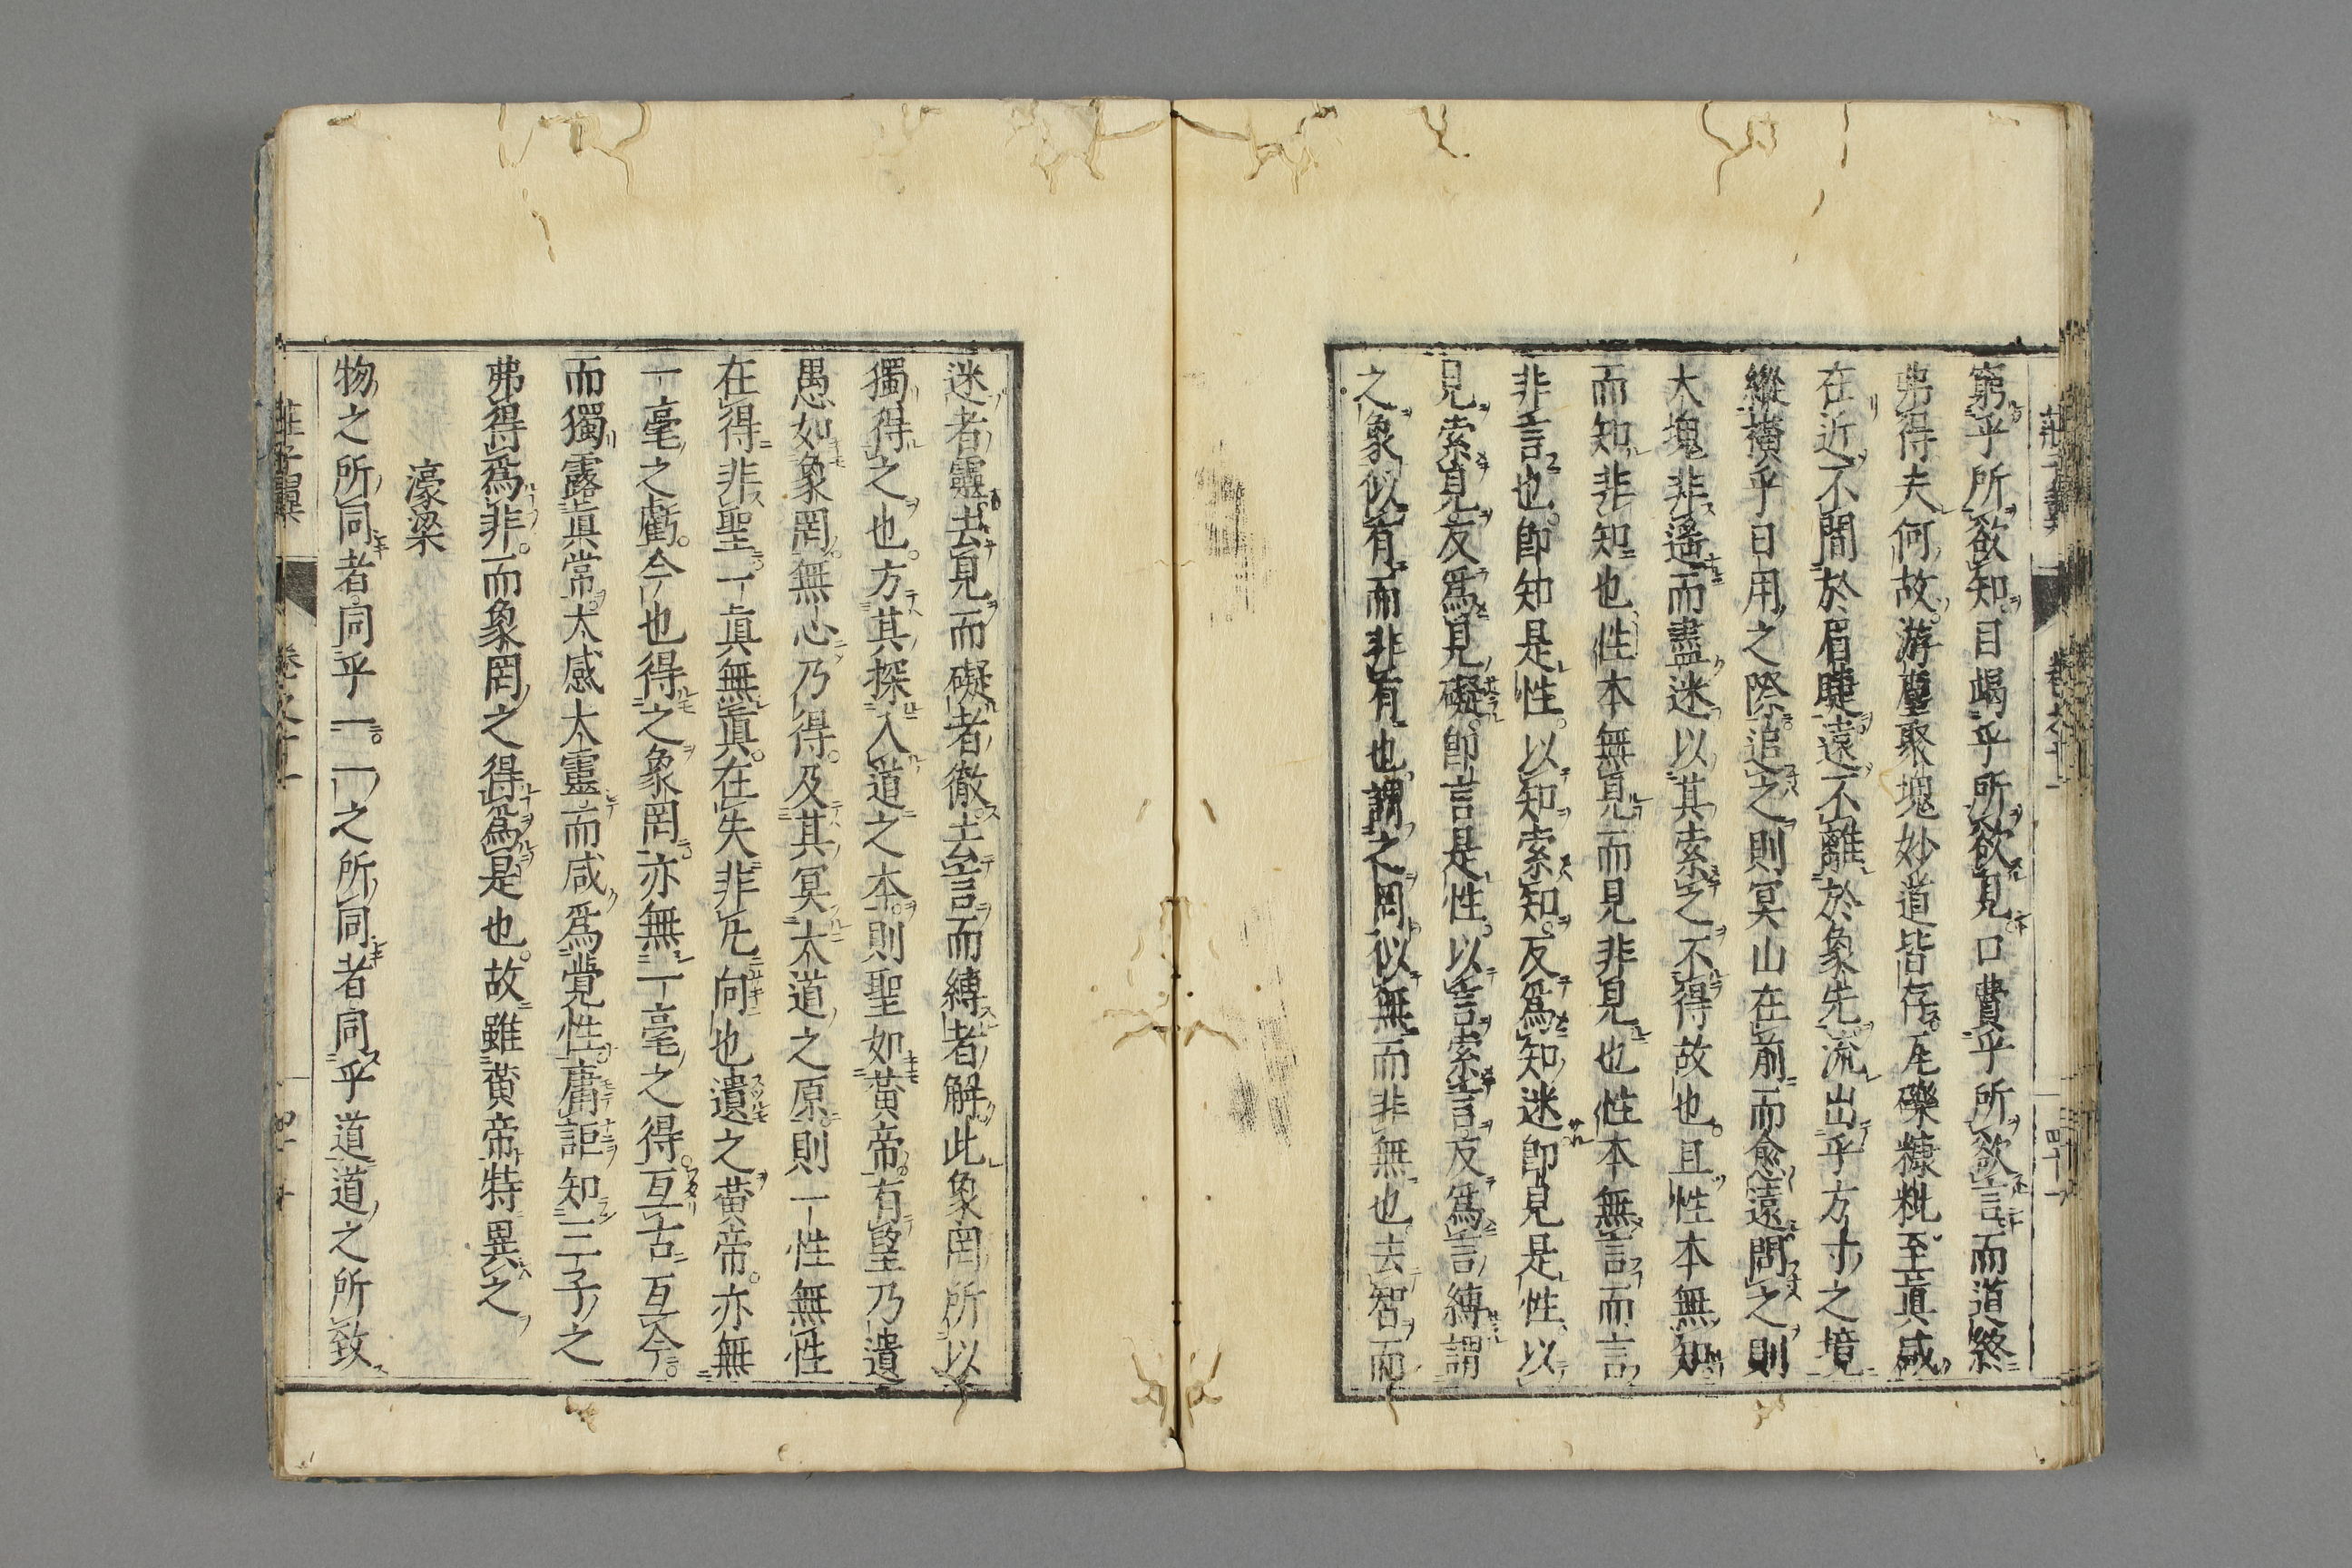 窮乎所欲知目竭乎所欲見口費乎所欲言而道終
弗得夫何故游塵聚塊妙道皆存瓦礫糠粃至真咸
在近不間於眉睫遠不離於象先流出乎方寸之境
縱橫乎日用之際追之則冥山在前而愈遠問之則
大塊非遙而盡迷以其索之不得故也且性本無知
而知非知也性本無見而見非見也性本無言而言
非言也即知是性以知索知反為知迷即見是性以
見索見反為見礙即言是性以言索言反為言縛謂
之象似有而非有也謂之罔似無而非無也去智而
迷者靈去見而礙者徹去言而縛者解此象罔所以
獨得之也方其探入道之本則聖如黃帝有望乃遺
愚如象罔無心乃得及其冥大道之原則一性無性
在得非聖一真無真在失非凡向也遺之黃帝亦無
一毫之虧今也得之象罔亦無一毫之得亙古亙今
而獨露真常大感大靈而咸為覺性庸詎知三子之
弗得為非而象罔之得為是也故雖黃帝特異之
濠梁
物之所同者同乎一一之所同者同乎道道之所致
莊子翼 卷之十一